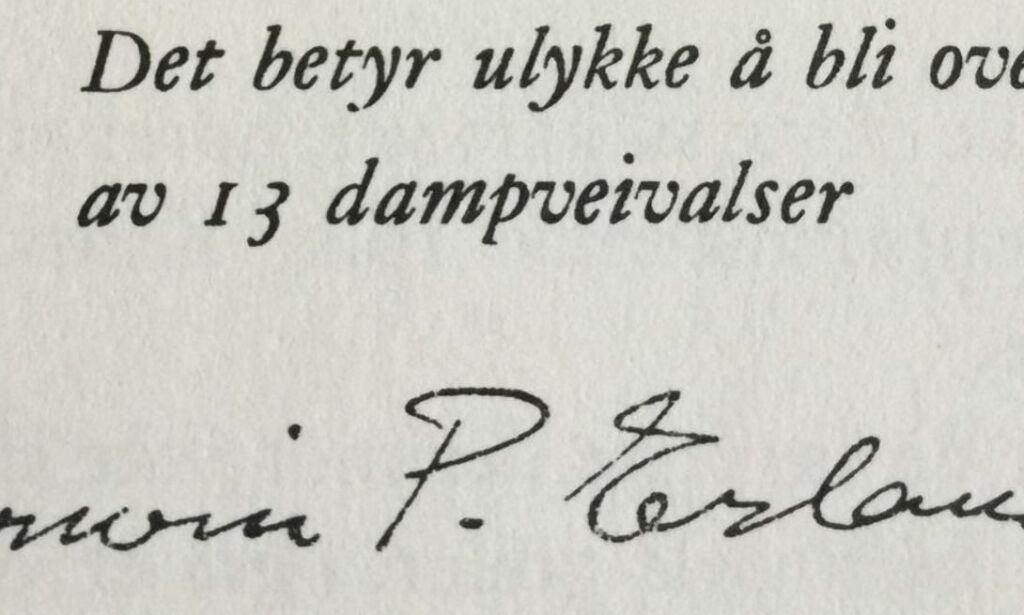 Det betyr ulykke å bli ove
av 13 dampveivalser
P. Erlan